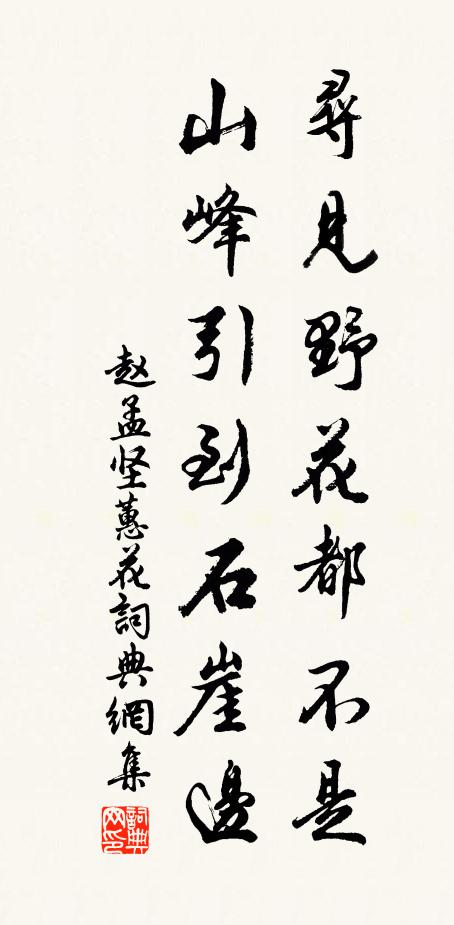 尋見野花都不是
山峰引到石崖邊
赵孟坚蕙花詞典網集
詞典网印